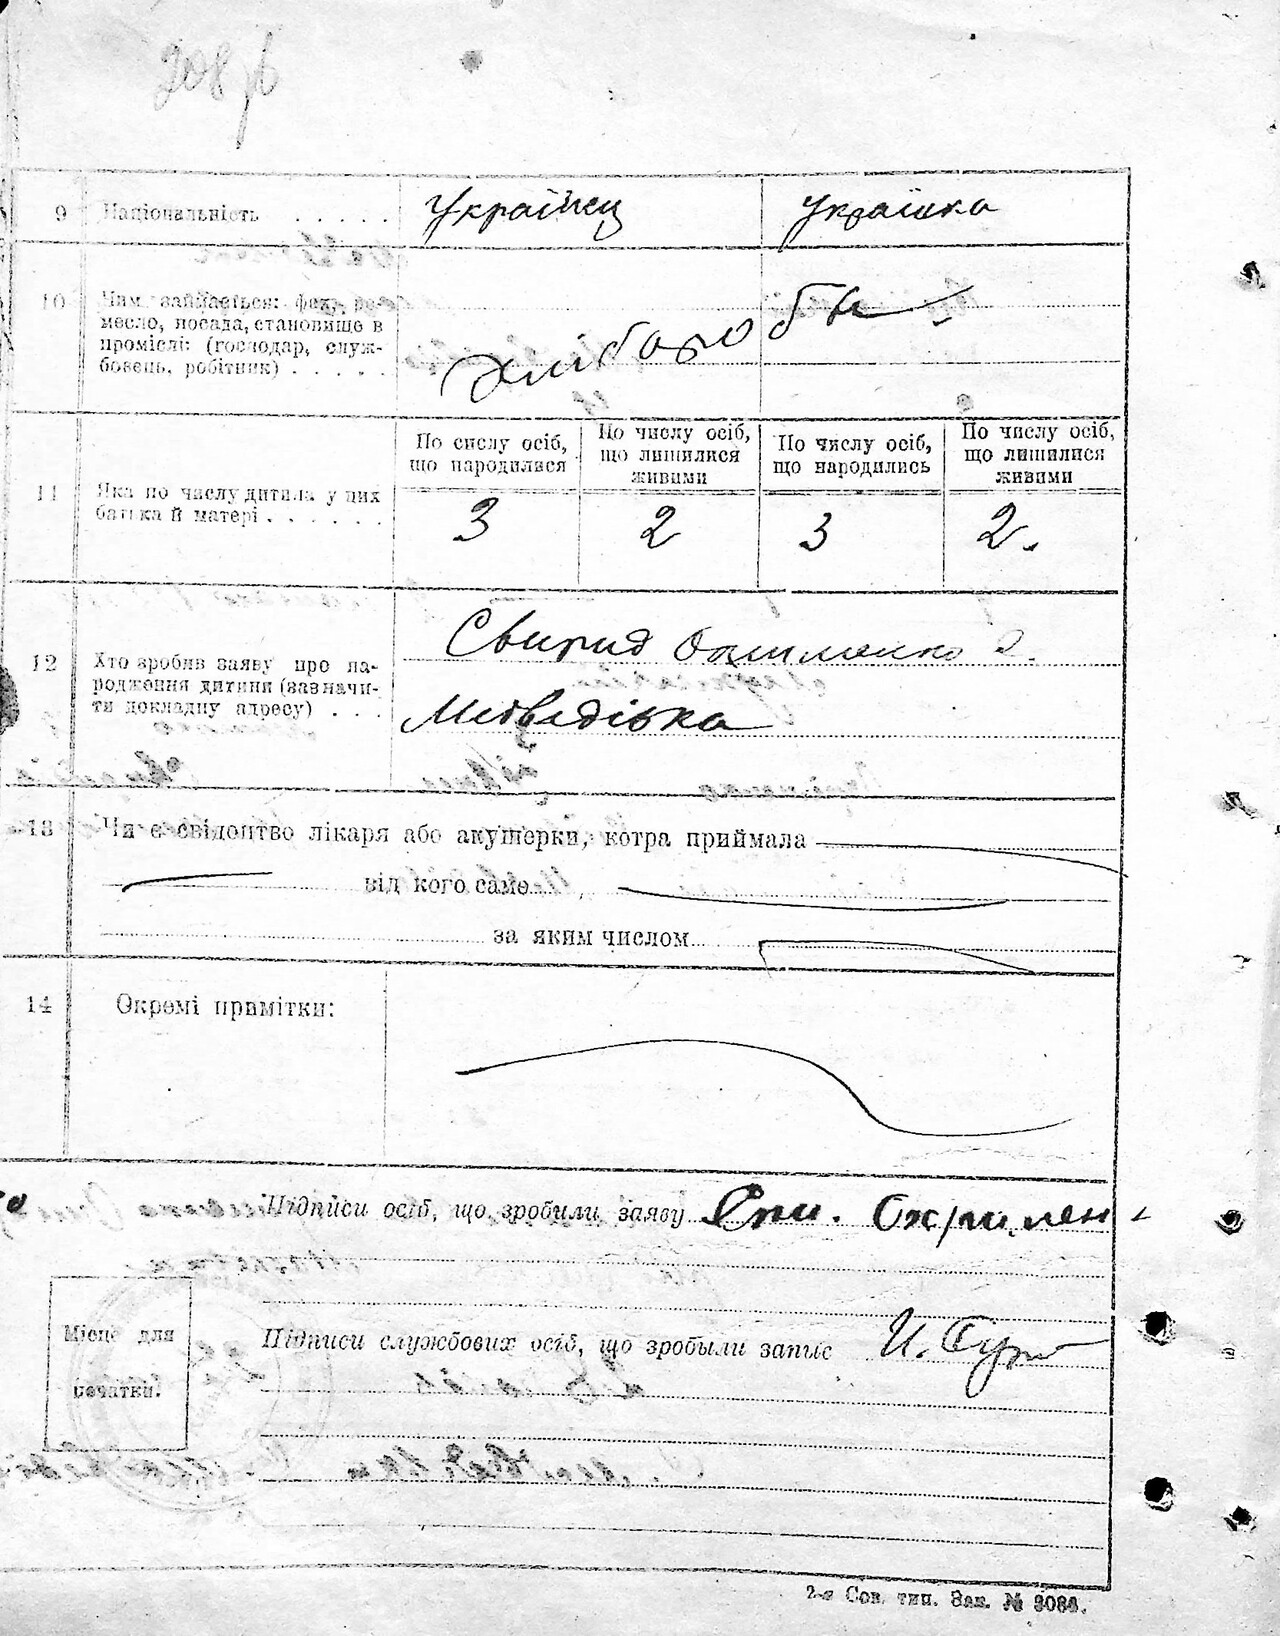 208
9 Національність . . . . . Українец Українка
10 Чим займається: фах, ре-
месло, посада, становище в
промислі: (господар, служ-
бовець, робітник) . . . . .
Хлібороби
11 Яка по числу дитина у них
батька й матері . . . . . .
По числу осіб, що народилися
По числу осіб, що лишилися живими
По числу осіб, що народились
По числу осіб, що лишилися живими
3 2 3 2.
12 Хто зробив заяву про на-
родження дитини (зазначи-
ти докладну адресу) . . .
Свирид Охріменко
Медведівка
13 Чи є свідоцтво лікаря або акушерки, котра приймала
від кого саме
за яким числом
14 Окремі примітки:
Підписи осіб, що зробили заяву Охримен
Місце для
печатки.
Підписи службових осіб, що зробыли запис
2-я Сов. тип. Зак. № 3084.